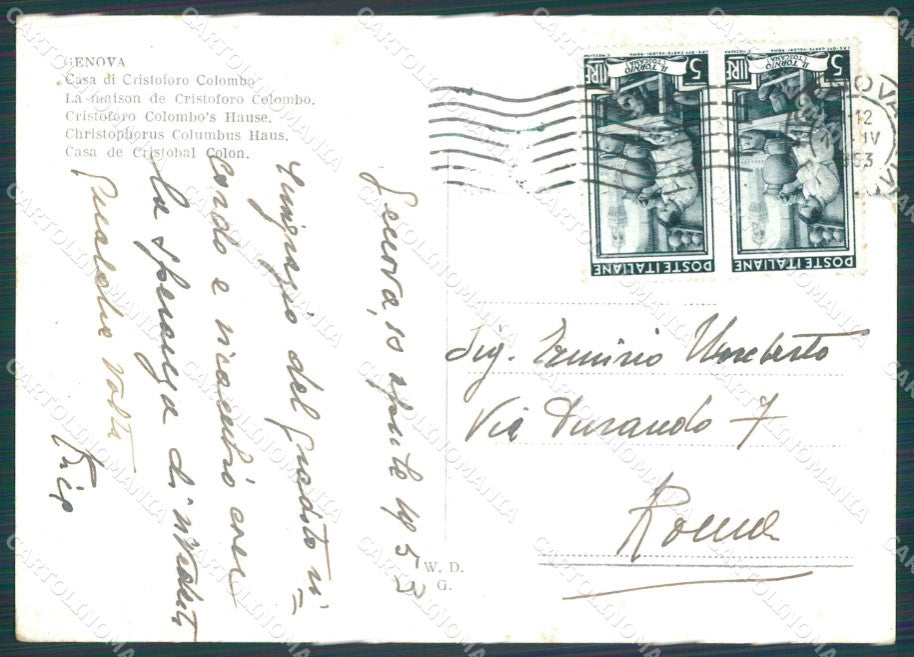 GENOVA
Casa di Cristoforo Colombo
La maison de Cristoforo Colombo.
Cristoforo Colombo's Hause.
Christophorus Columbus Haus.
Casa de Cristobal Colon.
Genova, 10 aprile 1953
ringrazio del gradito ri=
cordo e ricambio con
la speranza di vederti
qualche volta
W. D.
G.
5 LIRE
IL TORNIO
TOSCANA
POSTE ITALIANE
5 LIRE
IL TORNIO
TOSCANA
POSTE ITALIANE
Sig. Umberto
Via Durando 7
Roma
CARTOLINOMANIA